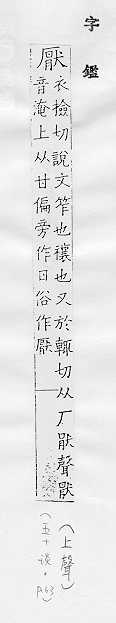 字鑑
厭
衣撿切說文笮也禳也又於輒切从厂猒聲猒
音淹上从甘偏旁作日俗作厭
(上聲)
(五十琰。P.63)